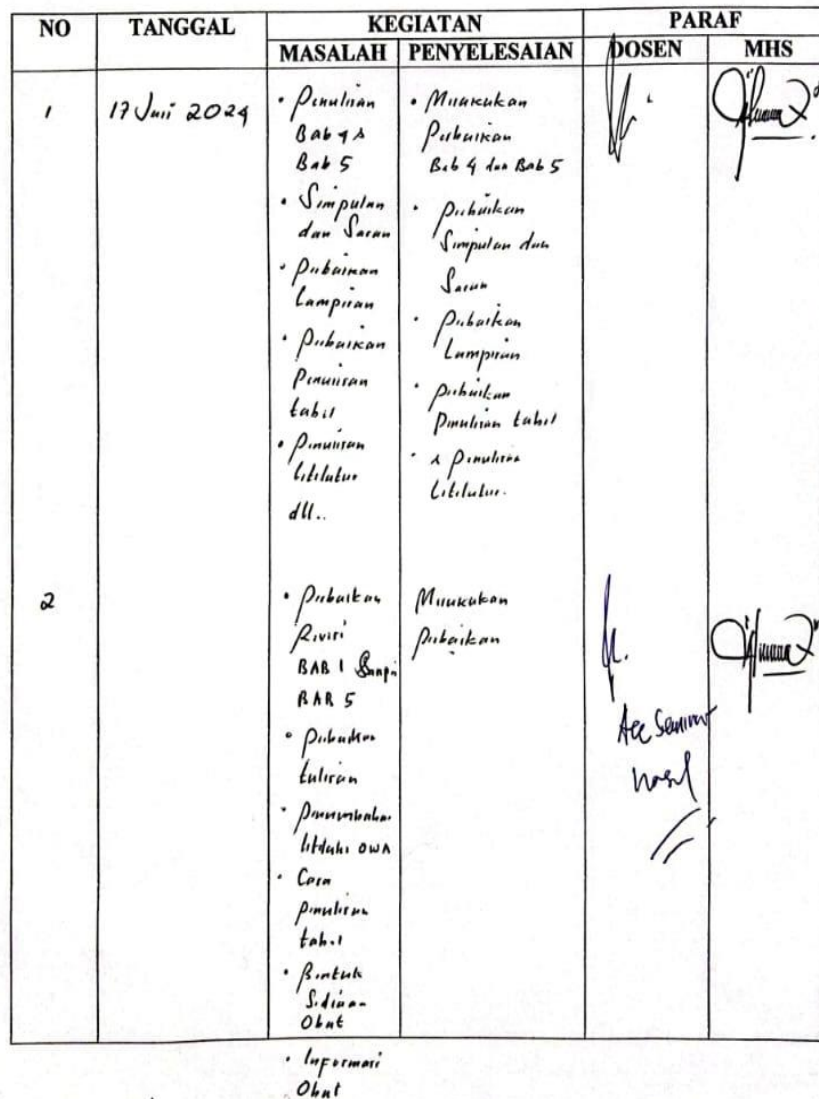 NO TANGGAL KEGIATAN PARAF
MASALAH PENYELESAIAN DOSEN MHS
1 17 Juni 2024
• Penulisan
Bab 4 &
Bab 5
• Simpulan
dan Saran
• Perbaikan
Lampiran
• Perbaikan
Penulisan
tabel
• Penulisan
litelatur
dll..
• Melakukan
Perbaikan
Bab 4 dan Bab 5
• Perbaikan
Simpulan dan
Saran
• Perbaikan
Lampiran
• Perbaikan
Penulisan tabel
• & Penulisan
Litelatur.
2
• Perbaikan
Revisi
BAB 1 Sampi
BAB 5
• Perbaikan
tulisan
• Penambahan
OWA
• Cara
penulisan
tabel
• Bentuk
Sediaan
Obat
• Informasi
Obat
Melakukan
Perbaikan
Acc Seminar
hasil